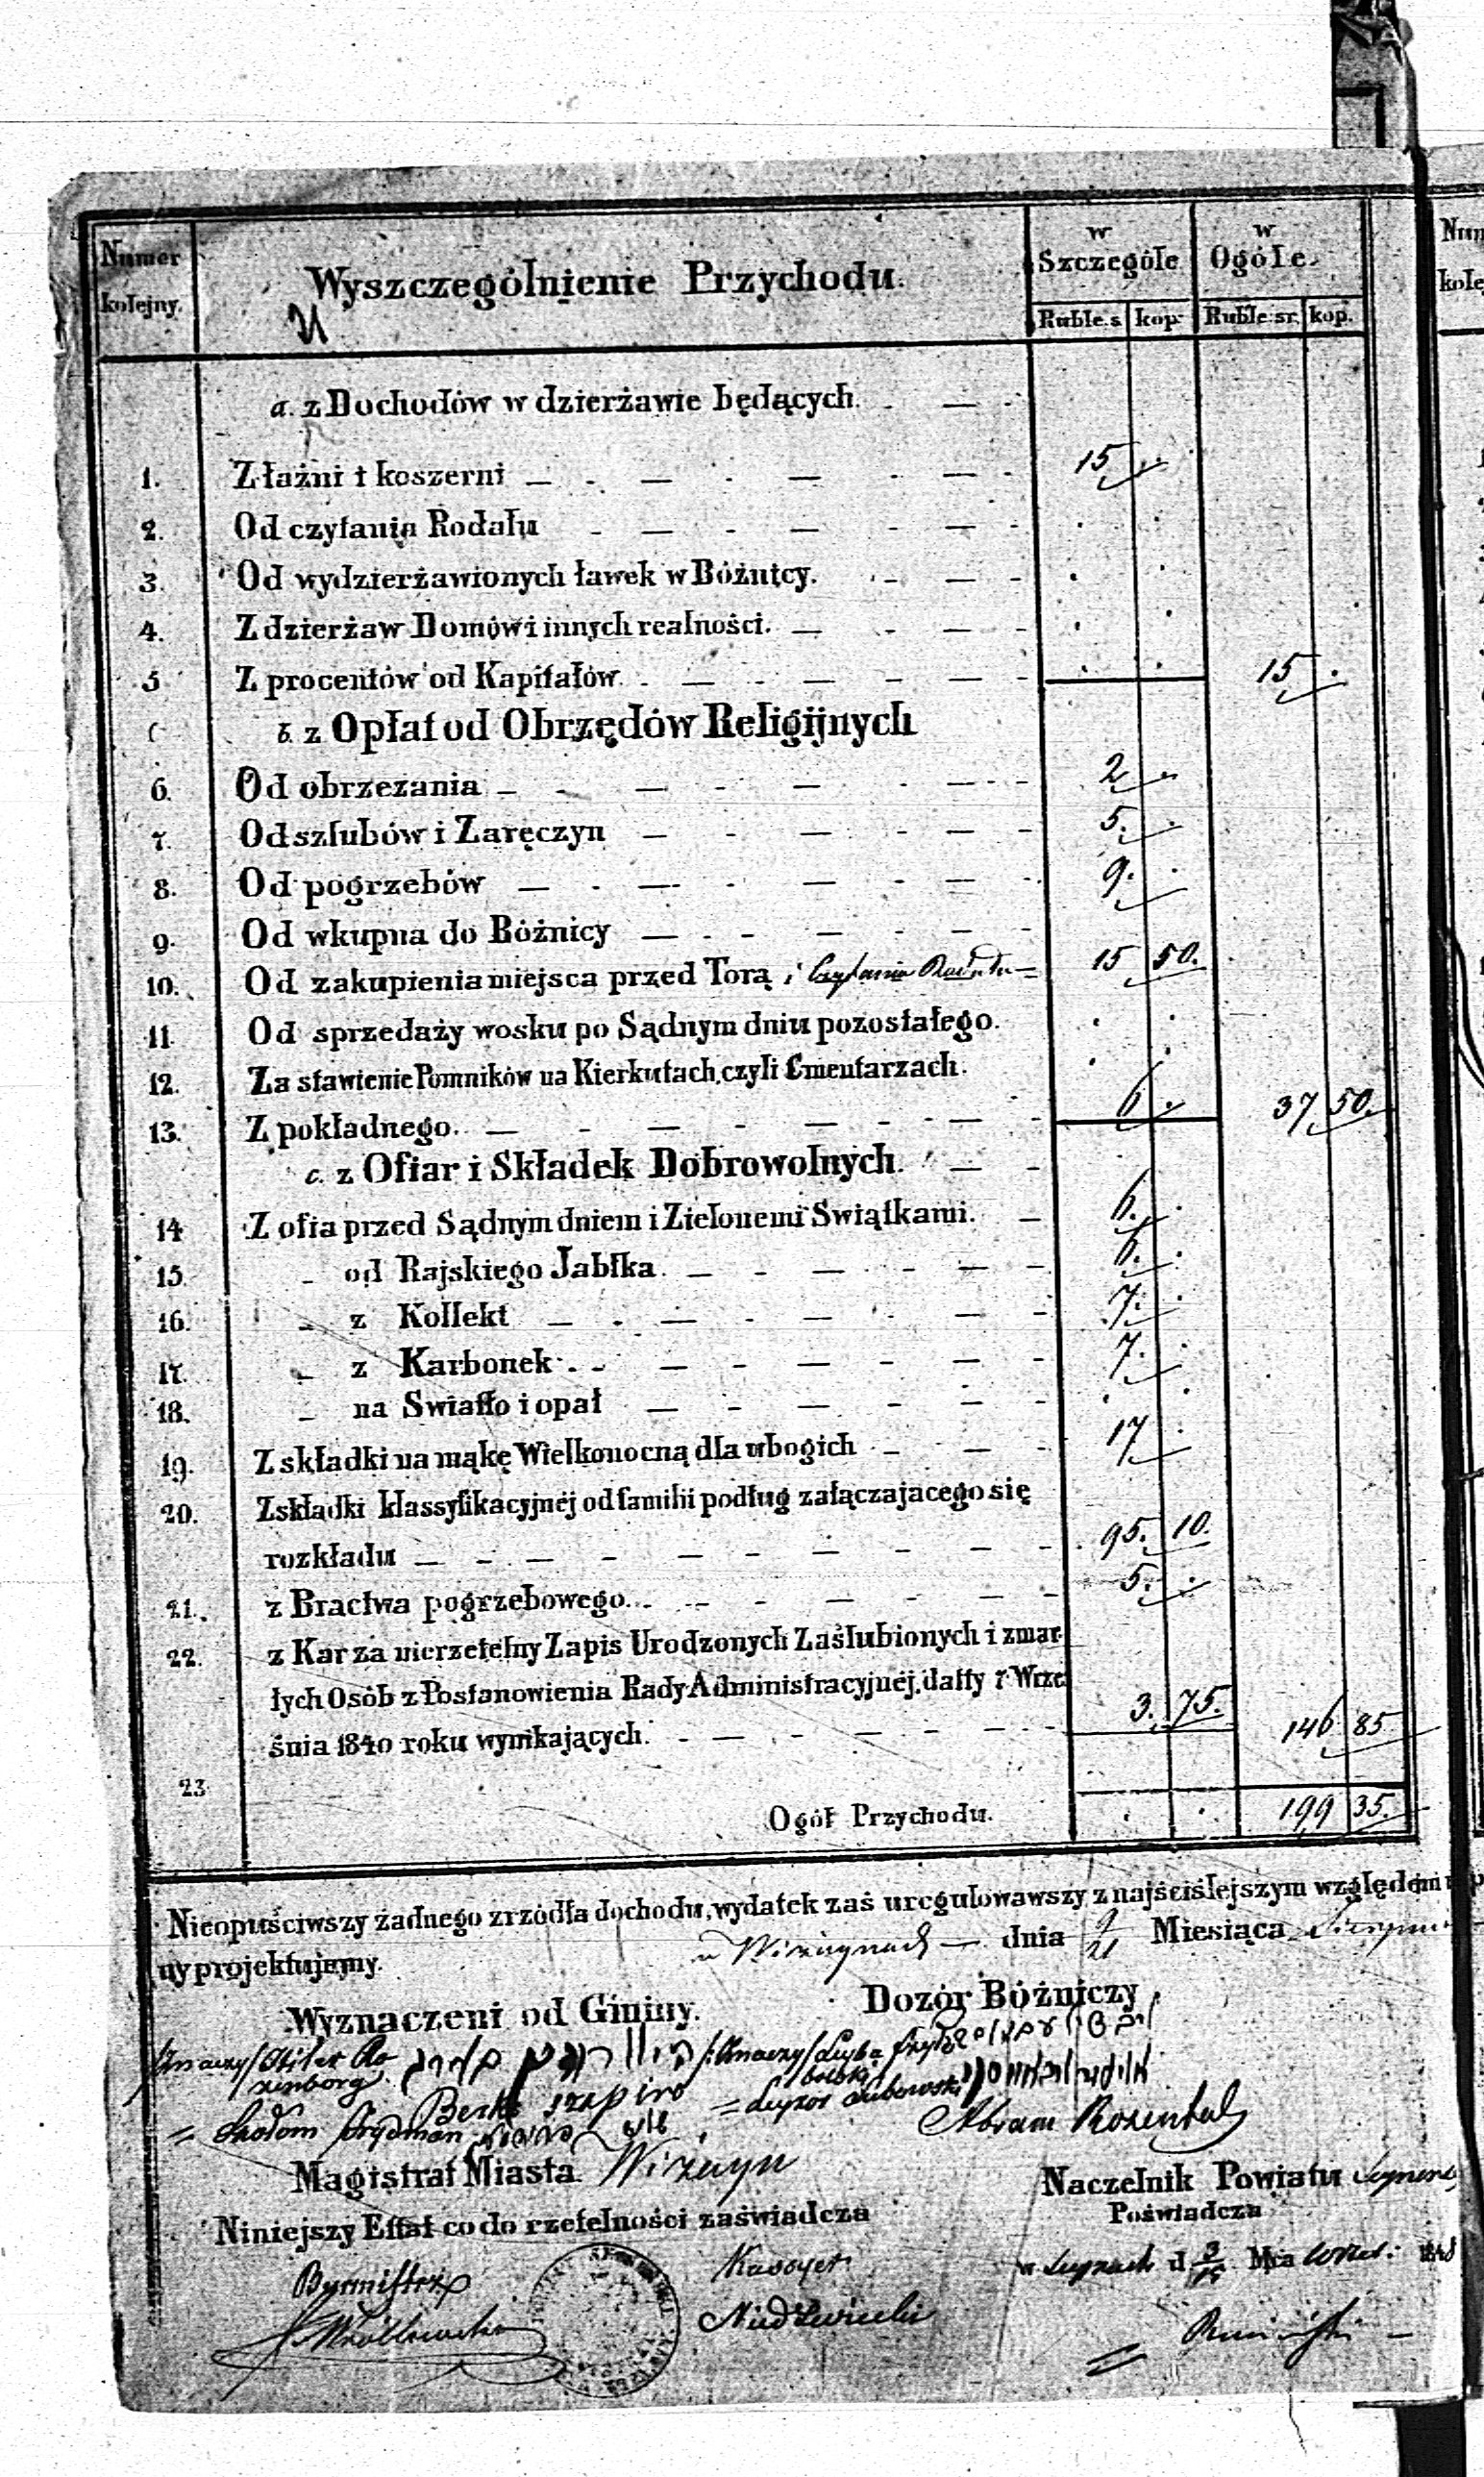 Numer kolejny.
Wyszczególnienie Przychodu.
w Szczególe
w Ogóle.
Ruble.s kop. Ruble.sr. kop.
a. z Dochodów w dzierżawie będących.
1. Z łaźni i koszerni 15 .
2. Od czytania Rodału . .
3. Od wydzierżawionych ławek w Bóżnicy. . .
4. Z dzierżaw Domów i innych realności. . .
5 Z procentów od Kapitałów . . 15 .
b. z Opłat od Obrzędów Religijnych
6. Od obrzezania 2 .
7. Od szlubów i Zaręczyn 5. .
8. Od pogrzebów 9. .
9. Od wkupna do Bóżnicy
10. Od zakupienia miejsca przed Torą i Czytania Rodału 15 50.
11. Od sprzedaży wosku po Sądnym dniu pozostałego. . .
12. Za stawienie Pomników na Kierkutach, czyli Cmentarzach. . .
13. Z pokładnego. 6 . 37 50.
c. z Ofiar i Składek Dobrowolnych.
14 Z ofia przed Sądnym dniem i Zielonemi Swiątkami. 6. .
15. „ od Rajskiego Jabłka. 6. .
16. „ z Kollekt 7. .
17. „ z Karbonek 7. .
18. „ na Swiatło i opał . .
19. Z składki na mąkę Wielkonocną dla ubogich 17 .
20. Z składki klassyfikacyjnéj od familii podług załączajacego się
rozkładu 95. 10.
21. z Bractwa pogrzebowego. 5. .
22. z Kar za nierzetelny Zapis Urodzonych Zaślubionych i zmar-
łych Osób z Postanowienia Rady Administracyjnéj. datty 7 Wrze
śnia 1840 roku wynikających. 3. 75. 146 85
23.
Ogół Przychodu. . . 199 35.
Nieopuściwszy żadnego zrzódła dochodu, wydatek zaś uregulowawszy z najściślejszym względem
ny projektujemy.
w Wizaynach dnia 9/21 Miesiąca Sierpnia
Wyznaczeni od Gminy.
Dozór Bóżniczy
Berko Szapiro
Leyzor Lubowski
= Sholom Frydman
Abram Rosenthal
Magistrat Miasta Wizayn
Naczelnik Powiatu
Niniejszy Ettat co do rzetelności zaświadcza
Poświadcza
Burmistrz
Kassyer
w d. 3/15 Mca Wrześ: 1848
Num
kole